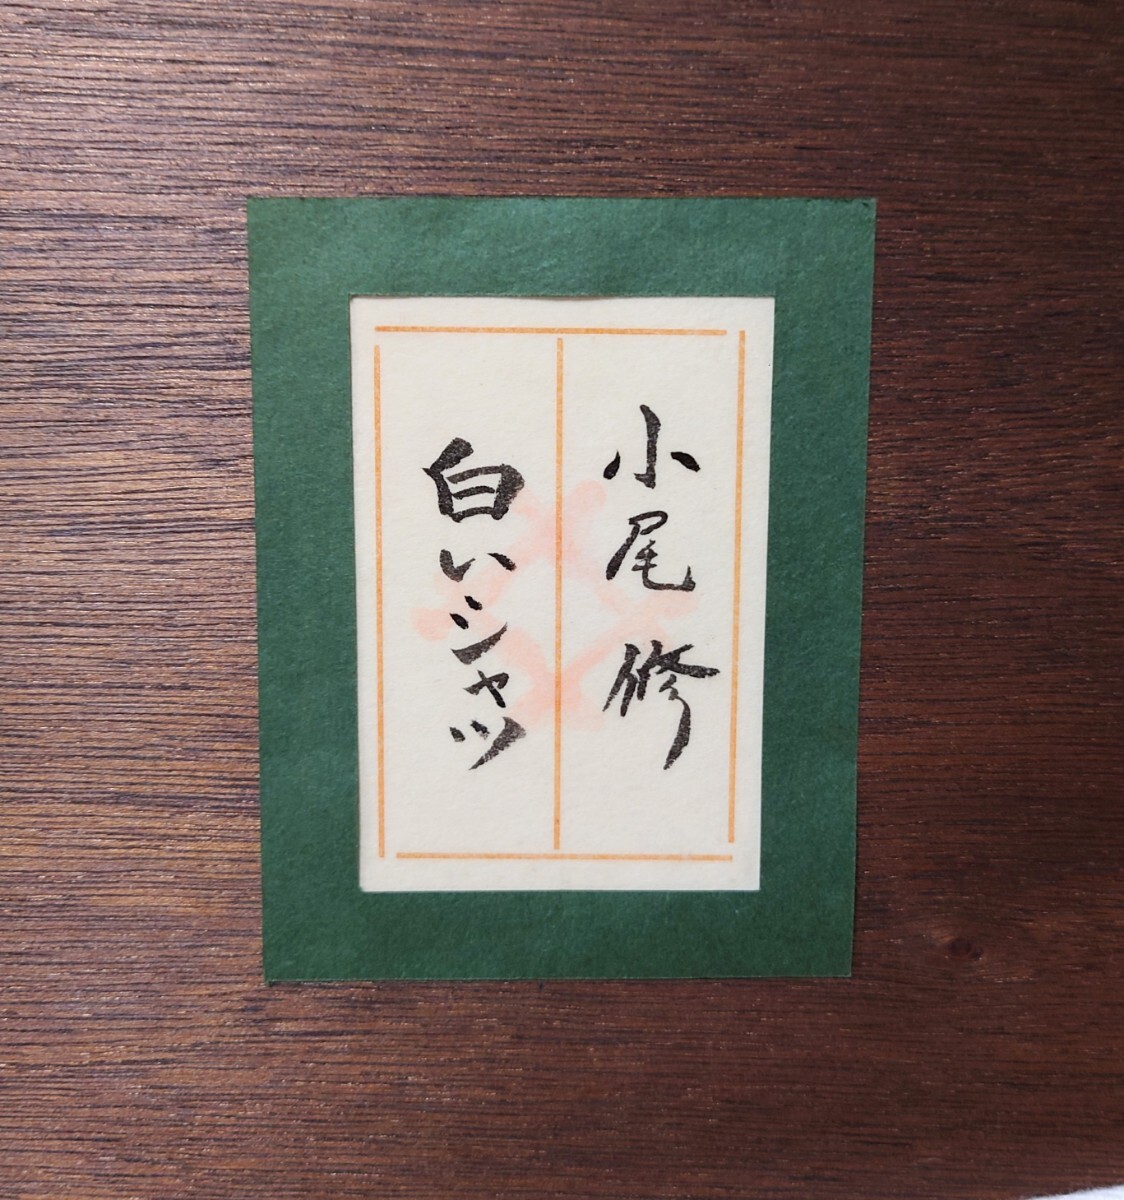 小尾修
白いシャツ